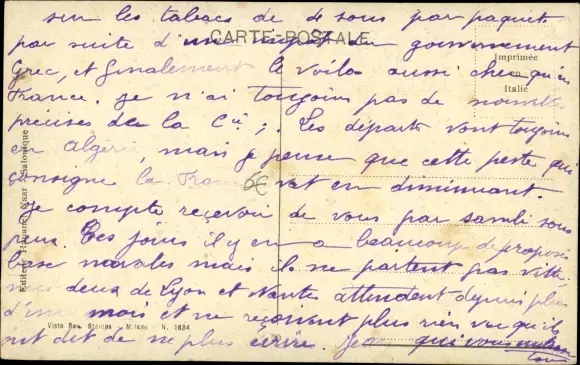 sur les tabacs de 4 sous par paquets
CARTE-POSTALE
par suite d'un impôt du gouvernement
Imprimée
en
Italie
Grec, et finalement le voila aussi cher qu'en
France. Je n'ai toujours pas de nouvelles
précises de la Cie; Les départs vont toujours
en Algérie, mais je pense que cette peste que
consigne la France vat en diminuant.
6€
Je compte reçevoir de vous par sambi sous
peu. Ces jours il y en a beaucoup de proposés
base navales mais ils ne partent pas vite
deux de Lyon et Nantes attendent depuis plus
d'un mois et ne reçoivent plus rien vu qu'ils
ont dit de ne plus écrire. Je qui vous
tous
Editeur Hananel Naar - Salonique
Visto Rev. Stampa - Milano - N. 1634